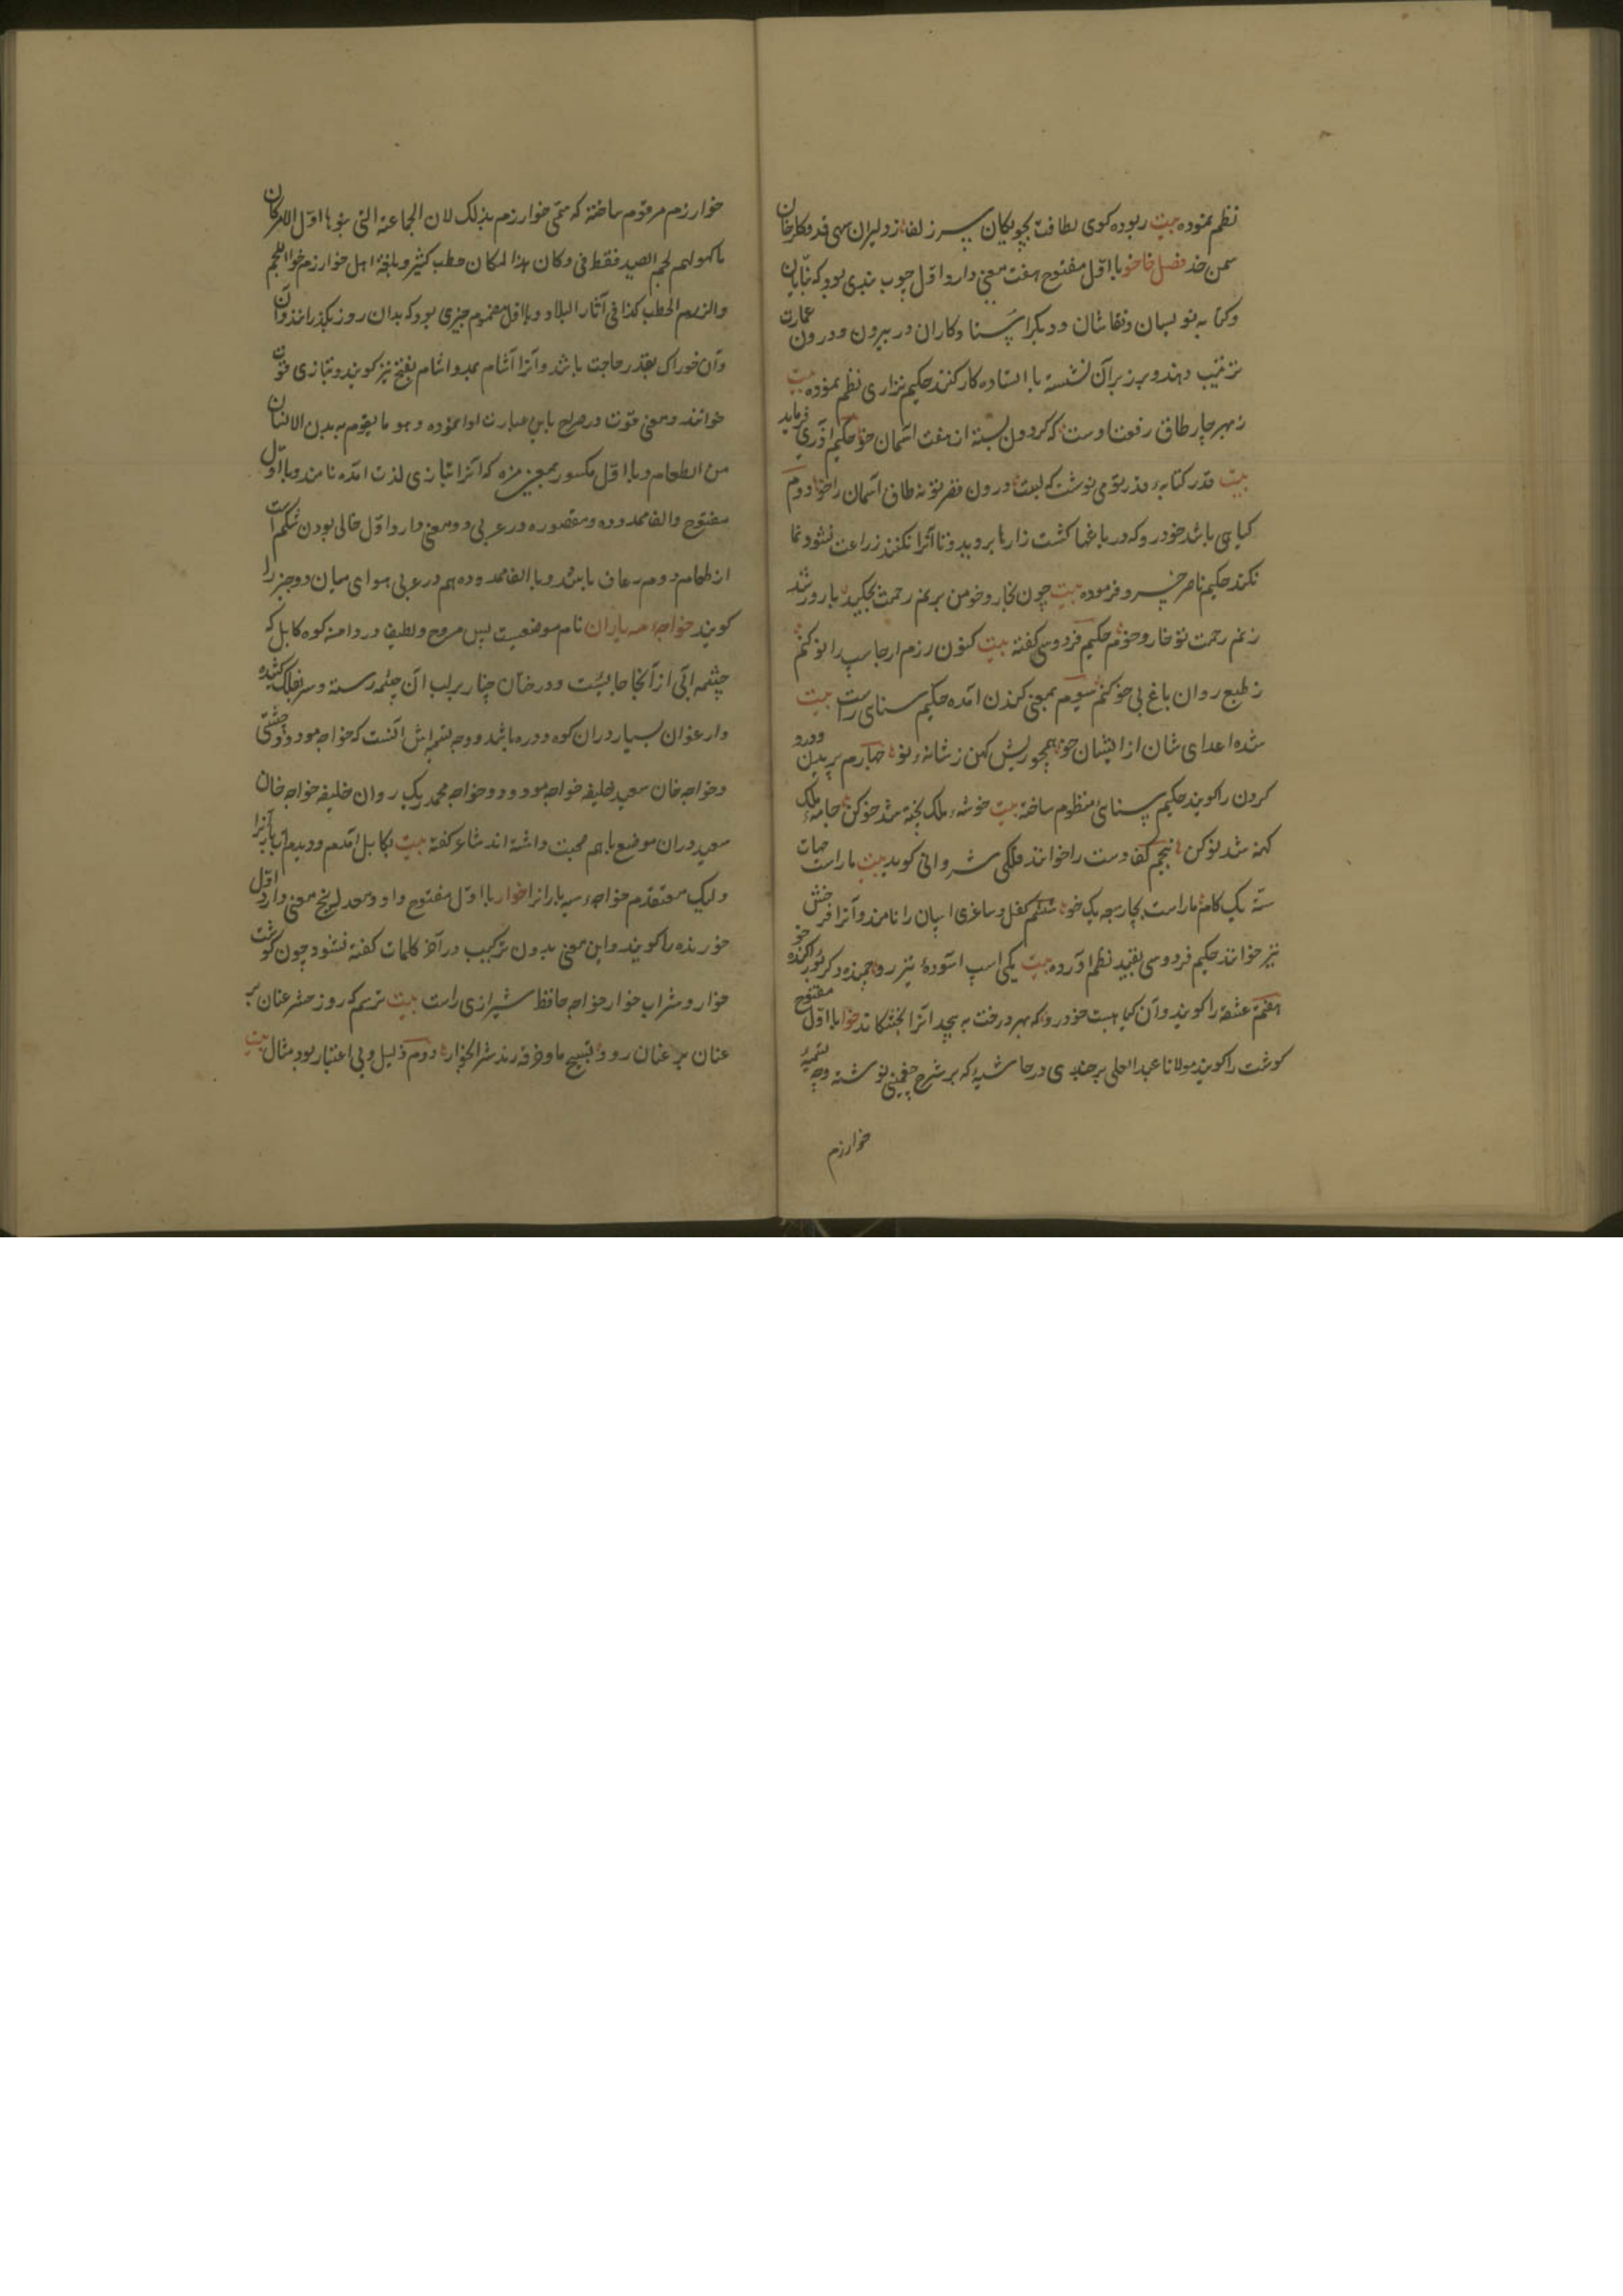 نظم نموده بیت ربوده کوی لطافت بچوکان سر زلف ز دلبران سهی قد و کلرخان
سمن خد فصل خا خو با اول مفتوح هفت معنی دارد اول چوب بندی بود که بنایان
و کتابه نویسان و نقاشان و دیکر استا دکاران در بیرون و درون عمارت
ترتیب دهند و بر زبر آن نشسته یا ایستاده کار کنند حکیم نزاری نظم نموده بیت
ز بهر چار طاق رفعت اوست که کردون بسته از هفت آسمان خو حکیم آذری فرماید
بیت قدر کتابه قدر تو می نوشت که بست درون قصر تو نه طاق آسمان را خو دوم
کیاهی باشد خودرو که در باغها کشت زارها بروید و تا آنرا نکنند زراعت نشو و نما
نکند حکیم ناصر خسرو فرموده بیت چون بخار و خو من بر نم رحمت بچکید بارور شد
ز نم رحمت تو خار و خوم حکیم فردوسی کفته بیت کنون رزم ارجاسپ را نو کنم
ز طبع روان باغ بی خو کنم سیوم بمعنی کندن آمده حکیم سنای راست بیت
شده اعدای شان از ایشان خو همچو ریش کهن ز شانه نو چهارم بریدن و درو
کردن را کویند حکیم سنای منظوم ساخته بیت خوشه ملک پخته شد خو کن جامه ملک
کهنه شد نو کن پنجم کف دست را خوانند فلکی شروانی کوید بیت ما راست جهات
سته یک کام ما راست بچار یک خو ششم کفل و ساغری اسپان را نامند و آنرا فرخش
نیز خوانند حکیم فردوسی بقید نظم آورده بیت یکی اسپ آسوده تیز رو جمنده دکر بور اکنده خو
هفتم عشقه را کویند و آن کیاهیست خودرو که بهر درخت به پیچد آنرا بخشکاند خوا با اول مفتوح
کوشت را کویند مولانا عبد العلی برجندی در حاشیه که بر شرح چغمینی نوشته وجه تسمیه
خوارزم
خوارزم مرقوم ساخته که سمی خوارزم بذلک لان الجماعة التی بنوها اول الامر کان
ماکولهم لحم الصید فقط فی وکان هذا المکان حطب کثیر و بلغة اهل خوارزم خوا اللحم
والزرم الحطب کذا فی آثار البلاد و با اول مضموم چیزی بود که بدان روز بکذرانند و آن
و آن خوراک بقدر حاجت باشد و آنرا آشام بمد و اشام بفتح نیز کویند و بتازی قوت
خوانند و معنی قوت در صراح باین عبارت ادا نموده و هو ما یقوم به بدن الانسان
من الطعام و با اول مکسور بمعنی مزه که آنرا بتازی لذت آمده نامند و با اول
مفتوح و الف ممدوده و مقصوره در عربی دو معنی دارد اول خالی بودن شکم است
از طعام دوم رعاف باشد و با الف ممدوده هم در عربی هوای میان دو چیز را
کویند خواجه سه یاران نام موضعیست بس مروح و لطیف در دامنه کوه کابل که
چشمه آبی از آنجا جاریست و درختان چنار بر لب آن چشمه رسته و سر بفلک کشیده
و ارغوان بسیار دران کوه و دره باشد و وجه تسمیه اش آنست که خواجه مودود چشتی
و خواجه خان سعید خلیفه خواجه مودود و خواجه محمد ریک روان خلیفه خواجه خان
سعید دران موضع باهم صحبت داشته اند شاعر کفته بیت بکابل آمدم و دیدم
ولیک معتقدم خواجه سه یارانرا خوار با اول مفتوح و واو معدوله پنج معنی دارد اول
خورنده را کویند و این معنی بدون ترکیب در آخر کلمات کفته نشود چون کوشت
خوار و شراب خوار خواجه حافظ شیرازی راست بیت ترسم که روز حشر عنان بر
عنان بر عنان رود تسبیح ما و خرقه رند شرابخوار دوم ذلیل و بی اعتبار بود مثال بیت